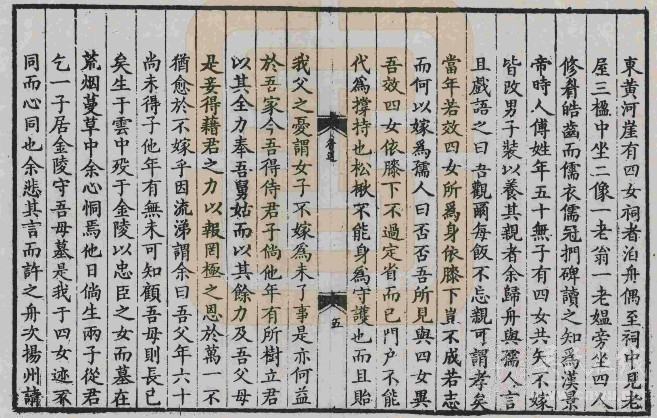 東黃河崖有四女祠者泊舟偶至祠中見老
屋三楹中坐二像一老翁一老媼旁坐四人
修髯皓齒而儒衣儒冠捫碑讀之知為漢景
帝時人傅姓年五十無子有四女共矢不嫁
皆改男子裝以養其親者余歸舟與孺人言
且戲語之曰吾觀爾每飯不忘親可謂孝矣
當年若效四女所為身依膝下豈不成若志
而何以嫁為孺人曰否否吾所見與四女異
吾效四女依膝下不過定省而已門户不能
代為撐持也松楸不能身為守護也而且貽
魯道
五
我父之憂謂女子不嫁為未了事是亦何益
於吾家今吾得侍君子倘他年有所樹立君
以其全力奉吾舅姑而以其餘力及吾父母
是妾得藉君之力以報罔極之恩於萬一不
猶愈於不嫁乎因流涕謂余曰吾父年六十
尚未得子他年有無未可知顧吾母則長已
矣生于雲中歿于金陵以忠臣之女而墓在
荒烟蔓草中余心恫焉他日倘生兩子從君
乞一子居金陵守吾母墓是我于四女迹不
同而心同也余悲其言而許之舟次揚州讀